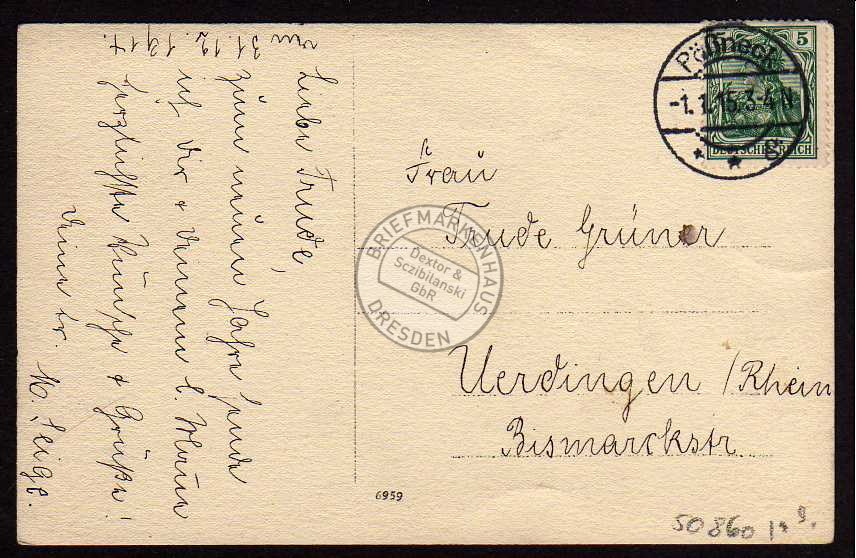 den 31.12.1914.
Liebe Trude,
zum neuen Jahre sende
ich dir & deinem l. Mann
herzlichste Wünsche & Grüße!
Deine tr. M. Seige.
5
DEUTSCHES REICH
Pößneck
-1.1.15.3-4 N
* * g
Frau
Trude Grüner
Uerdingen /Rhein
Bismarckstr.
BRIEFMARKENHAUS
Dextor &
Sczibilanski
GbR
DRESDEN
6959
50860